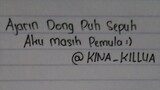 Ajarin Dong Puh Sepuh
Aku Masih Pemula :)
@KINA_KILLUA